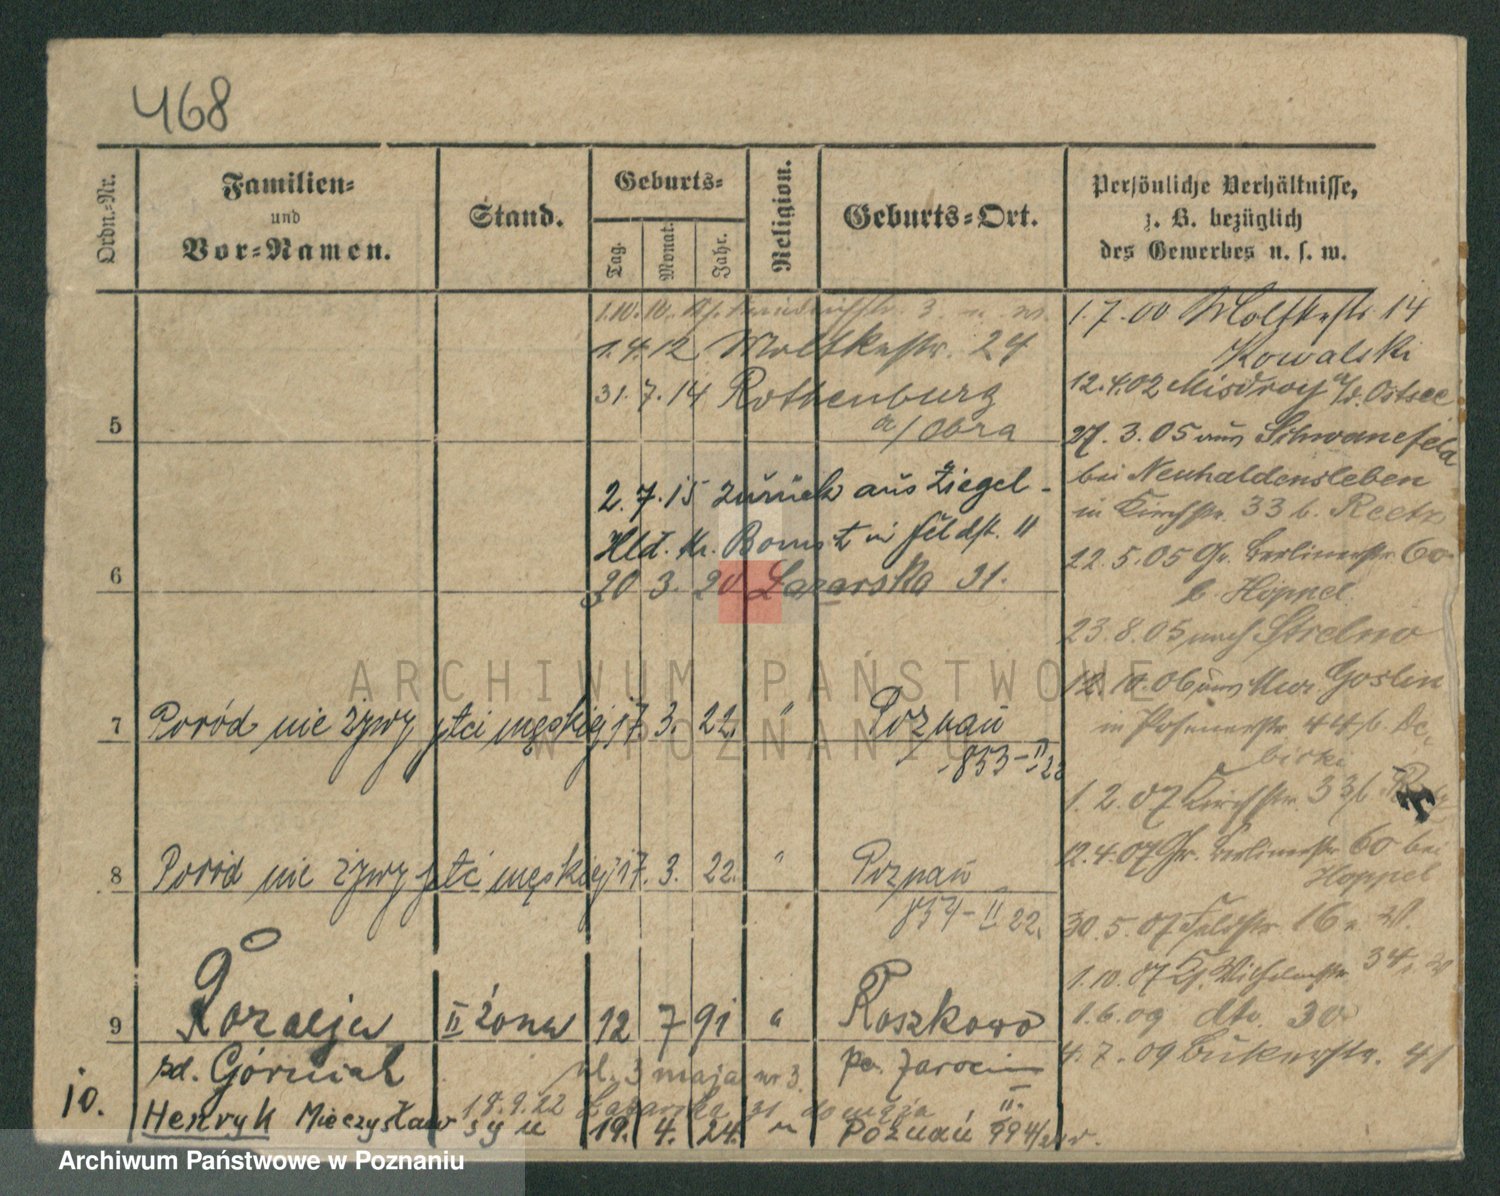 468
Ordn.-Nr.
Familien-
und
Vor-Namen.
Stand.
Geburts-
Tag.
Monat.
Jahr.
Religion.
Geburts-Ort.
Persönliche Verhältnisse,
z. B. bezüglich
des Gewerbes u. s. w.
1.10.10. 3
1.4.12 Moltkestr. 24
31.7.14 Rothenburg
a/Obra
5
2.7.15 zurück aus Ziegel-
Hld. Kr. Bomst in Feldst. 11
20 3. 20 Łazarska 31.
6
7 Poród nie żywy płci męskiej 17. 3. 22. " Poznań
853-II 22
8 Poród nie żywy płci męskiej 17. 3. 22. " Poznań
854-II 22.
9 II żona 12 7 91 " Roszkowo
zd. Górniak ul. 3 maja nr 3. pow. Jarocin
18.9.22 Łazarska 31 do męża II.
10. Henryk Mieczysław syn 19. 4. 24. " Poznań 994/24
1.7.00 Moltkestr 14
Kowalski
12.4.02 Misdroy a/d. Ostsee
27.3.05 aus Schwanefeld
bei Neuhaldensleben
in Kirchstr. 33 b. Reetz
22.5.05 Gr. Berlinerstr. 60
b. Hoppel
23.8.05 nach Strelno
10.06 aus Mur. Goslin
in Posenerstr. 44 b.
1.2.07 Kirchstr. 33 b.
12.4.07 Gr. Berlinerstr 60 bei
Hoppel
30.5.07 Feldstr 16
1.10.07 Wilhelmstr. 34
1.6.09 dto. 30
4.7.09 Bukerstr. 41
ARCHIWUM PAŃSTWOWE
W POZNANIU
Archiwum Państwowe w Poznaniu